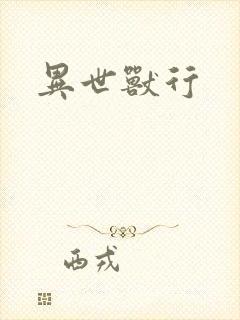 異世獸行
西戎